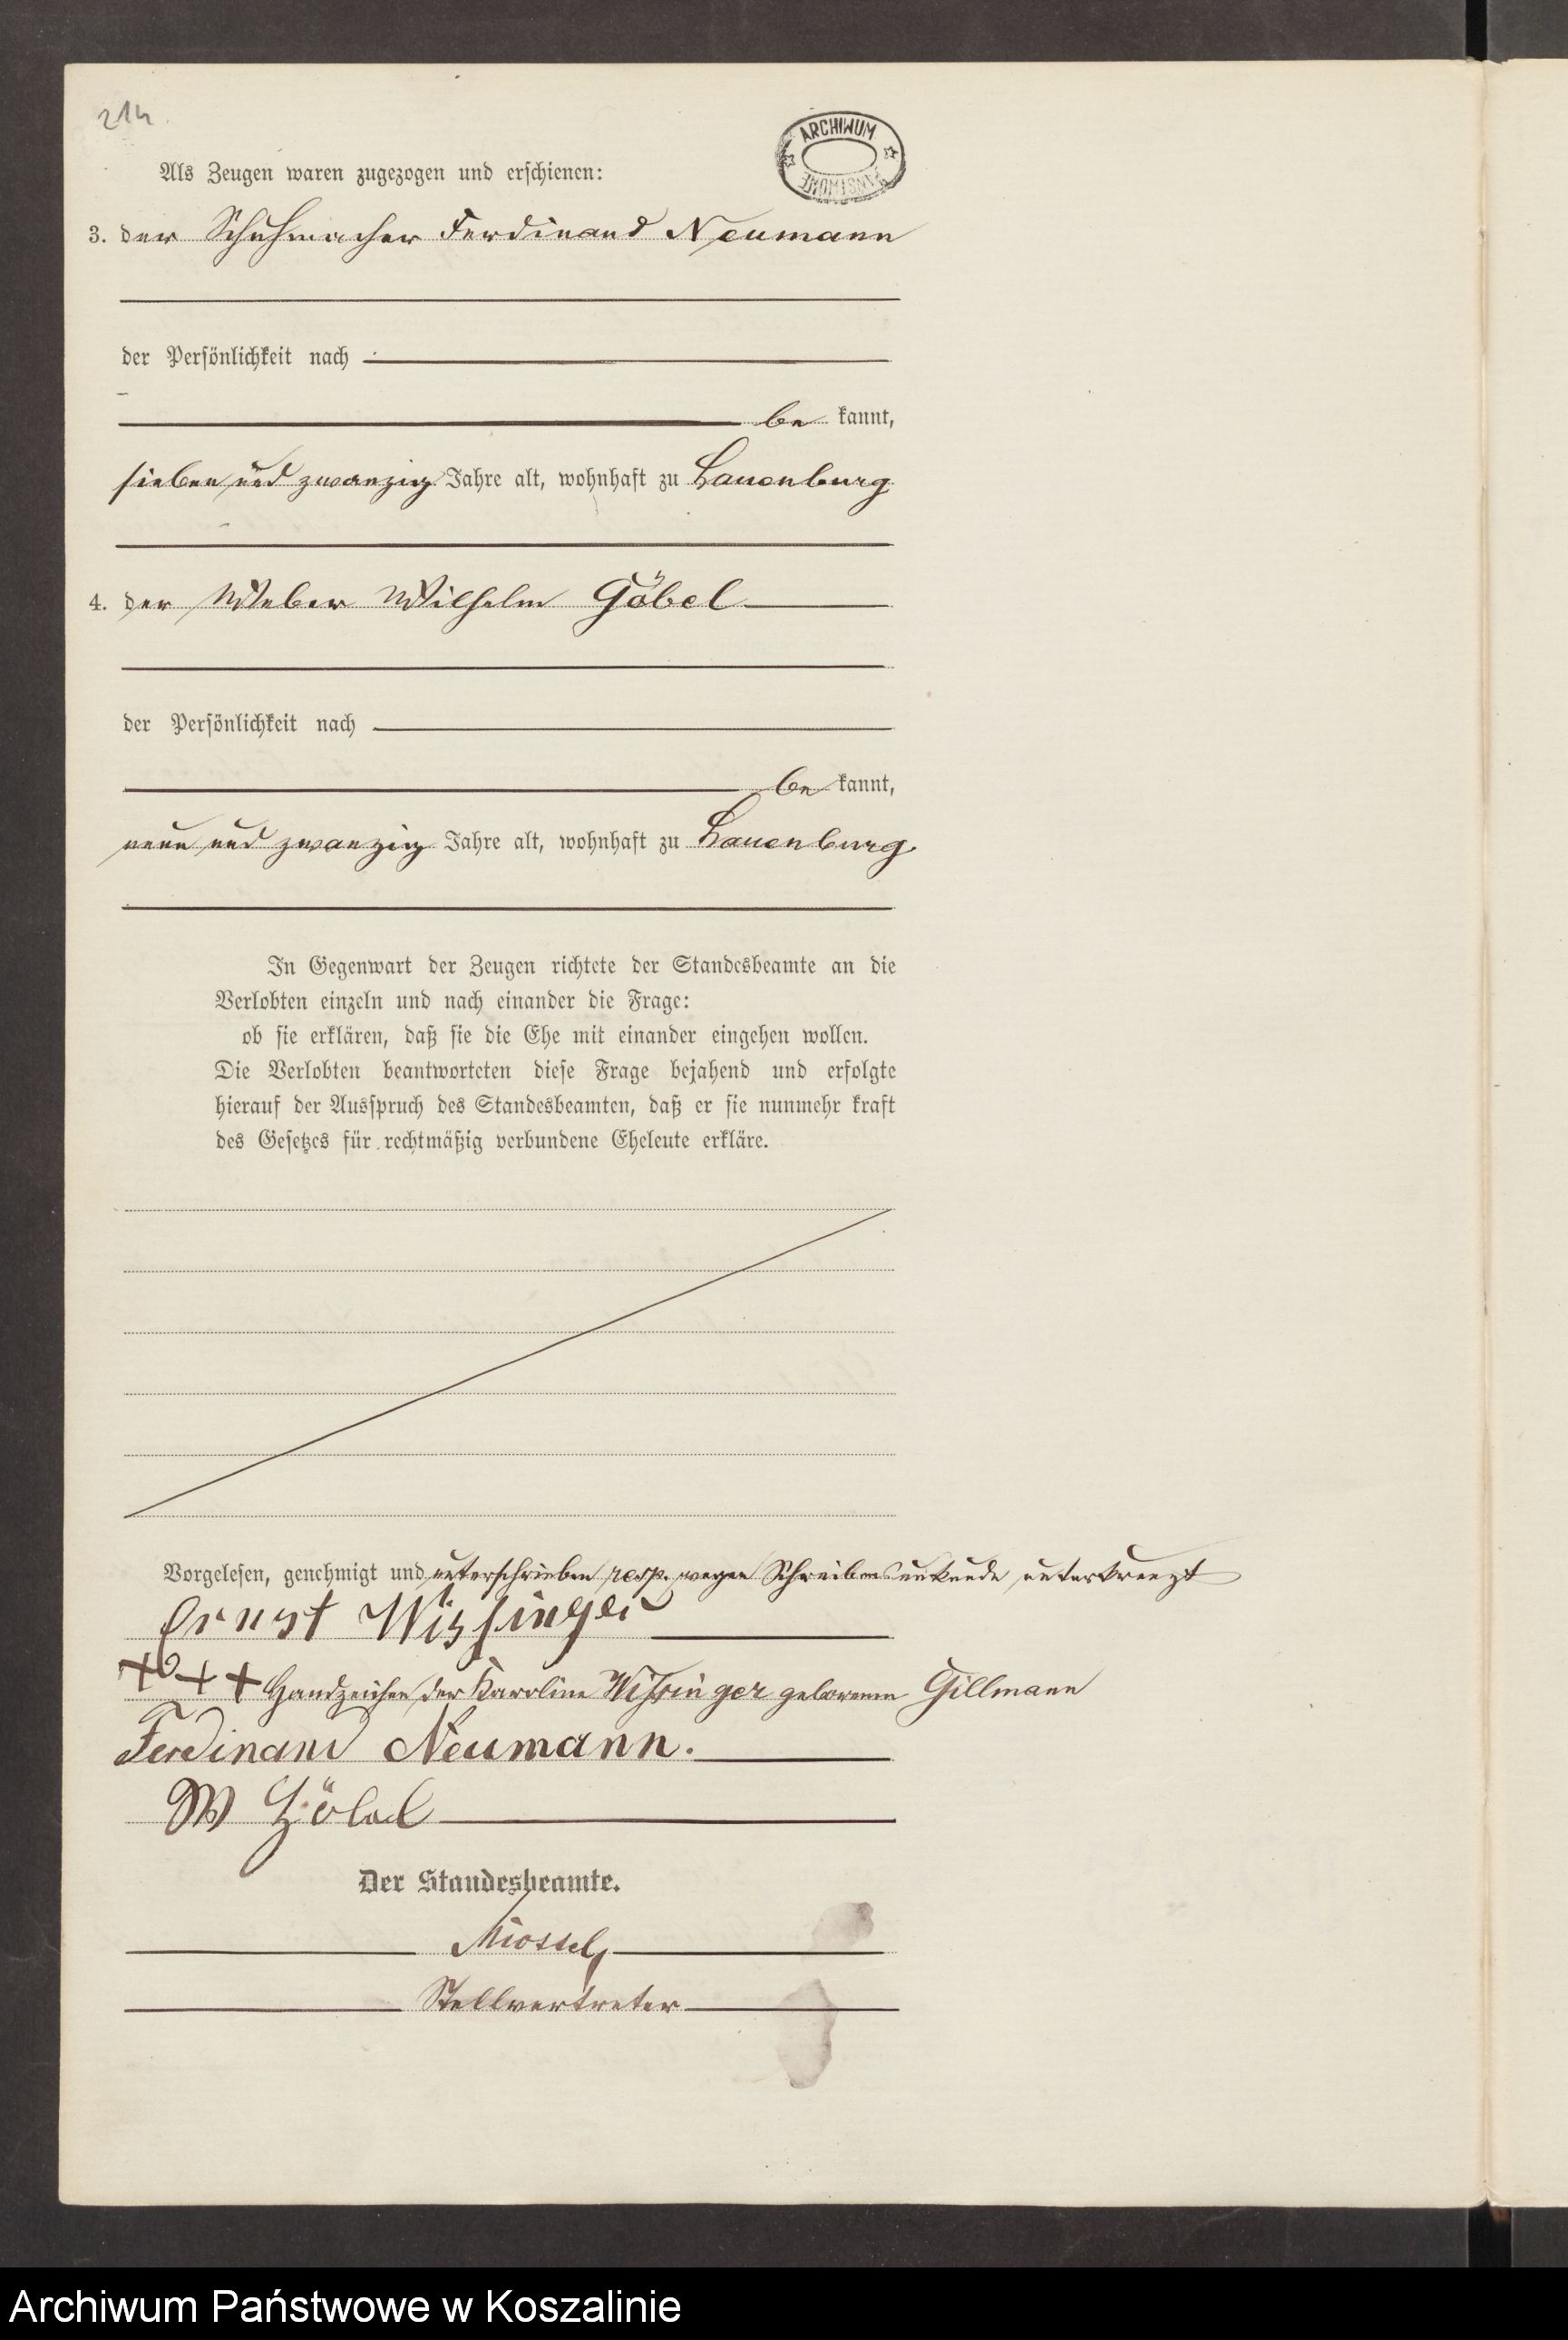 214
ARCHIWUM
PAŃSTWOWE
Als Zeugen waren zugezogen und erschienen:
3. der Schuhmacher Ferdinand Neumann
der Persönlichkeit nach
be kannt,
sieben und zwanzig Jahre alt, wohnhaft zu Lauenburg
4. der Weber Wilhelm Göbel
der Persönlichkeit nach
be kannt,
neun und zwanzig Jahre alt, wohnhaft zu Lauenburg
In Gegenwart der Zeugen richtete der Standesbeamte an die
Verlobten einzeln und nach einander die Frage:
ob sie erklären, daß sie die Ehe mit einander eingehen wollen.
Die Verlobten beantworteten diese Frage bejahend und erfolgte
hierauf der Ausspruch des Standesbeamten, daß er sie nunmehr kraft
des Gesetzes für rechtmäßig verbundene Eheleute erkläre.
Vorgelesen, genehmigt und unterschrieben resp. wegen Schreibensunkunde unterkreuzt
Ernst Wissinger
+++ Handzeichen der Karoline Wissinger geborenen Gillmann
Ferdinand Neumann.
W Göbel
Der Standesbeamte.
Stellvertreter
Archiwum Państwowe w Koszalinie